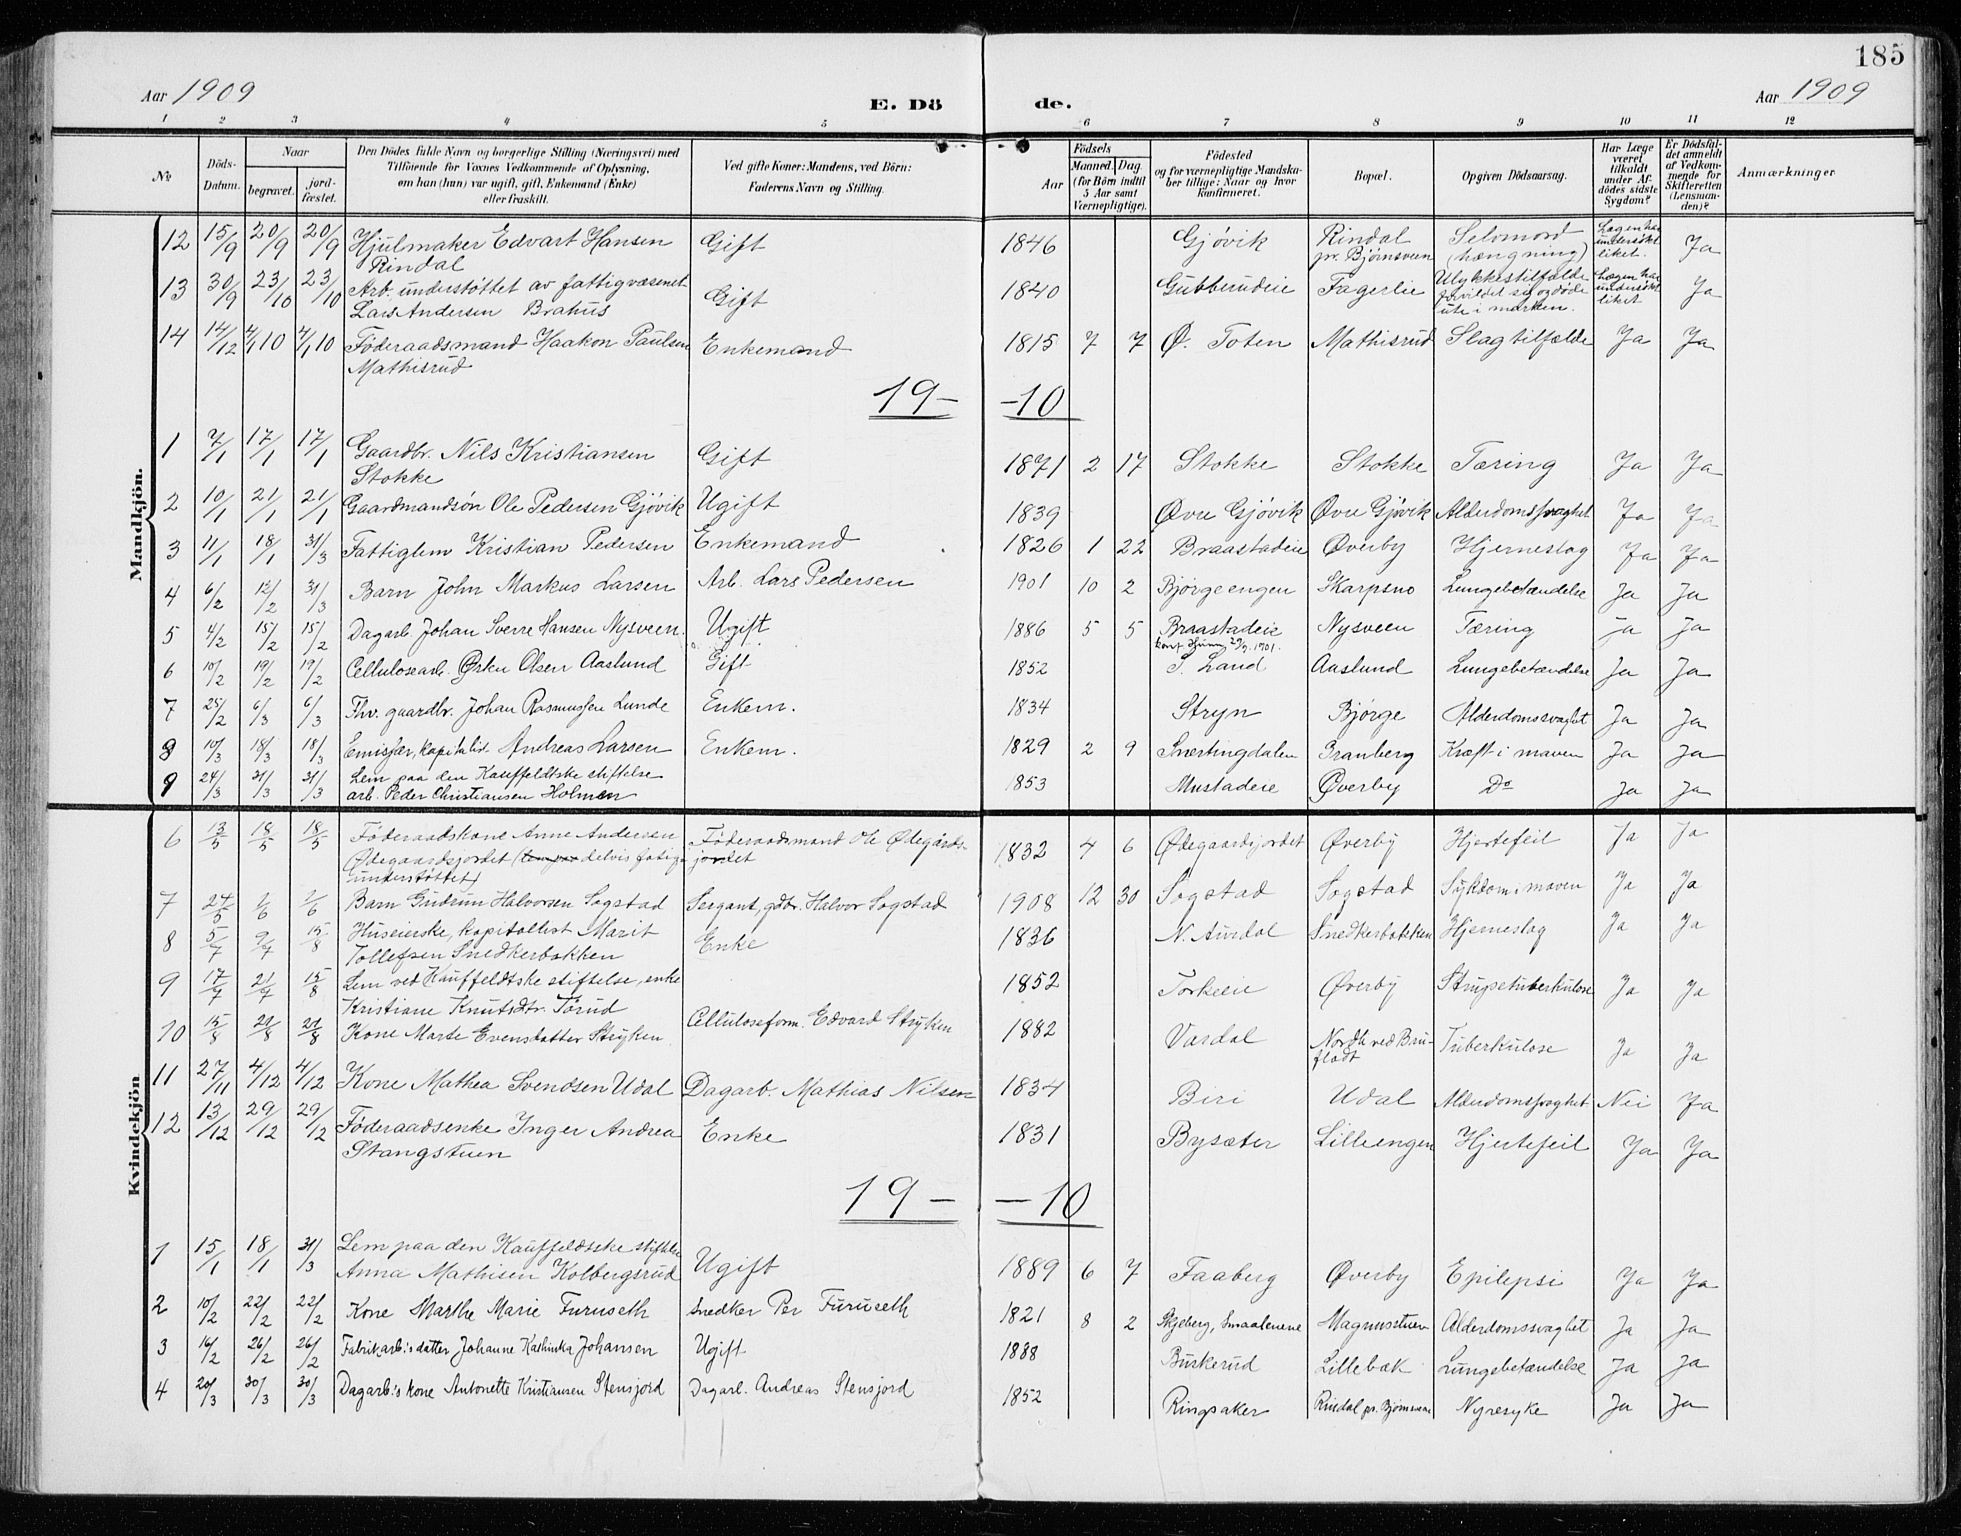 185
Aar 1909 E. Dö de. Aar 1909
1 2 3 4 5 6 7 8 9 10 11 12
№
Döds-Datum.
Naar
begravet.
jord-fæstet.
Den Dödes fulde Navn og borgerlige Stilling (Næringsvei) med
Tilföiende for Voxnes Vedkommende af Oplysning,
om han (hun) var ugift, gift, Enkemand (Enke)
eller fraskilt.
Ved gifte Koner: Mandens, ved Börn:
Faderens Navn og Stilling.
Födsels
Aar
Maaned. Dag.
(for Börn indtil
5 Aar samt
Værnepligtige).
Födested
og for værnepligtige Mandska-
ber tillige: Naar og hvor
konfirmeret.
Bopæl.
Opgiven Dödsaarsag.
Har Læge
været
tilkaldt
under Af-
dödes sidste
Sygdom?
Er Dödsfal-
det anmeldt
af Vedkom-
mende for
Skifteretten
(Lensman-
den)?
Anmærkninger
Mandkjön.
12 15/9 20/9 20/9 Hjulmaker Edvart Hansen Gift 1846 Gjøvik Rindal Selvmord Lægen har Ja
Rindal pr. Bjørnsveen (hængning) undersøkt
liket.
13 30/9 23/10 23/10 Arb. understøttet av fattigvæsenet Gift 1840 Gubberudeie Fagerlie Ulykkestilfælde Lægen har Ja
Lars Andersen Brahus forvildet sig og døde undersøkt
ute i marken. liket
14 14/12 4/1 10 4/1 10 Føderaadsmand Haakon Paulsen Enkemand 1815 7 7 Ø. Toten Mathisrud Slagtilfælde Ja Ja
Mathisrud
19— —10
1 7/1 17/1 17/1 Gaardbr. Nils Kristiansen Gift 1871 2 17 Stokke Stokke Tæring Ja Ja
Stokke
2 10/1 21/1 21/1 Gaardmandsøn Ole Pedersen Gjøvik Ugift 1839 Øvre Gjøvik Øvre Gjøvik Alderdomssvaghet Ja Ja
3 11/1 18/1 31/3 Fattiglem Kristian Pedersen Enkemand 1826 1 22 Braastadeie Øverby Hjerneslag Ja Ja
4 6/2 12/2 31/3 Barn John Markus Larsen Arb. Lars Pedersen 1901 10 2 Bjørgeengen Skarpsno Lungebetændelse Ja Ja
5 4/2 15/2 15/2 Dagarb. Johan Sverre Hansen Nysveen. Ugift 1886 5 5 Braastadeie Nysveen Tæring ja Ja
6 10/2 19/2 19/2 Cellulosearb. Ørku Olsen Aaslund Gift 1852 S. Land Aaslund Lungebetændelse Ja Ja
7 25/2 6/3 6/3 Fhv. gaardbr. Johan Rasmussen Lunde Enkem. 1834 Stryn Bjørge Alderdomssvaghet Ja Ja
8 10/3 18/3 18/3 Emissær, kapitalist Andreas Larsen Enkem. 1829 2 9 Snertingdalen Granberg Kræft i maven Ja Ja
9 24/3 31/3 31/3 Lem paa den Kauffeldtske stiftelse
arb. Peder Christiansen Holmen 1853 Mustadeie Øverby Do Ja Ja
Kvindekjön
6 13/5 18/5 18/5 Føderaadskone Anne Andersen Føderaadsmand Ole Ødegårds- 1832 4 6 Ødegaardsjordet Øverby Hjertefeil Ja Ja
Ødegaardsjordet ( delvis fattig- jordet
understøttet)
7 24/5 1/6 1/6 Barn Gudrun Halvorsen Sogstad Sergant, gdbr. Halvor Sogstad 1908 12 30 Sogstad Sogstad Sykdom i maven Ja Ja
8 5/7 9/7 15/8 Huseierske, kapitalist Marit Enke 1836 N. Aurdal Snedkerbakken Hjerneslag Ja Ja
Tollefsen Snedkerbakken
9 17/7 21/7 15/8 Lem ved Kauffeldtske stiftelse, enke 1852 Torkeie Øverby Strupetuberkulose Ja Ja
Kristiane Knutsdtr. Torud
10 15/8 21/8 21/8 Kone Marte Evensdatter Stryken Celluloseform. Edvard Stryken 1882 Vardal Nordli ved Bru- Tuberkulose Ja Ja
fladt
11 27/11 4/12 4/12 Kone Mathea Svendsen Udal Dagarb. Mathias Nilsen 1834 Biri Udal Alderdomssvaghet Nei Ja
12 13/12 29/12 29/12 Føderaadsenke Inger Andrea Enke 1831 Bysæter Lilleengen Hjertefeil Ja Ja
Stangstuen
19— —10
1 15/1 18/1 31/3 Lem paa den Kauffeldtske stiftelse
Anna Mathisen Kolbergsrud Ugift 1889 6 7 Faaberg Øverby Epilepsi Ja Ja
2 10/2 22/2 22/2 Kone Marthe Marie Furuseth Snedker Per Furuseth 1821 8 2 Skjeberg, Smaalenene Magnusstuen Alderdomssvaghet Ja Ja
3 16/2 26/2 26/2 Fabrikarb.'s datter Johanne Kathinka Johansen Ugift 1888 Buskerud Lillebæk Lungebetændelse Ja Ja
4 20/3 30/3 30/3 Dagarb.'s kone Antonette Kristiansen Stensjord Dagarb. Andreas Stensjord 1852 Ringsaker Rindal pr. Bjørnsveen Nyresyke Ja Ja